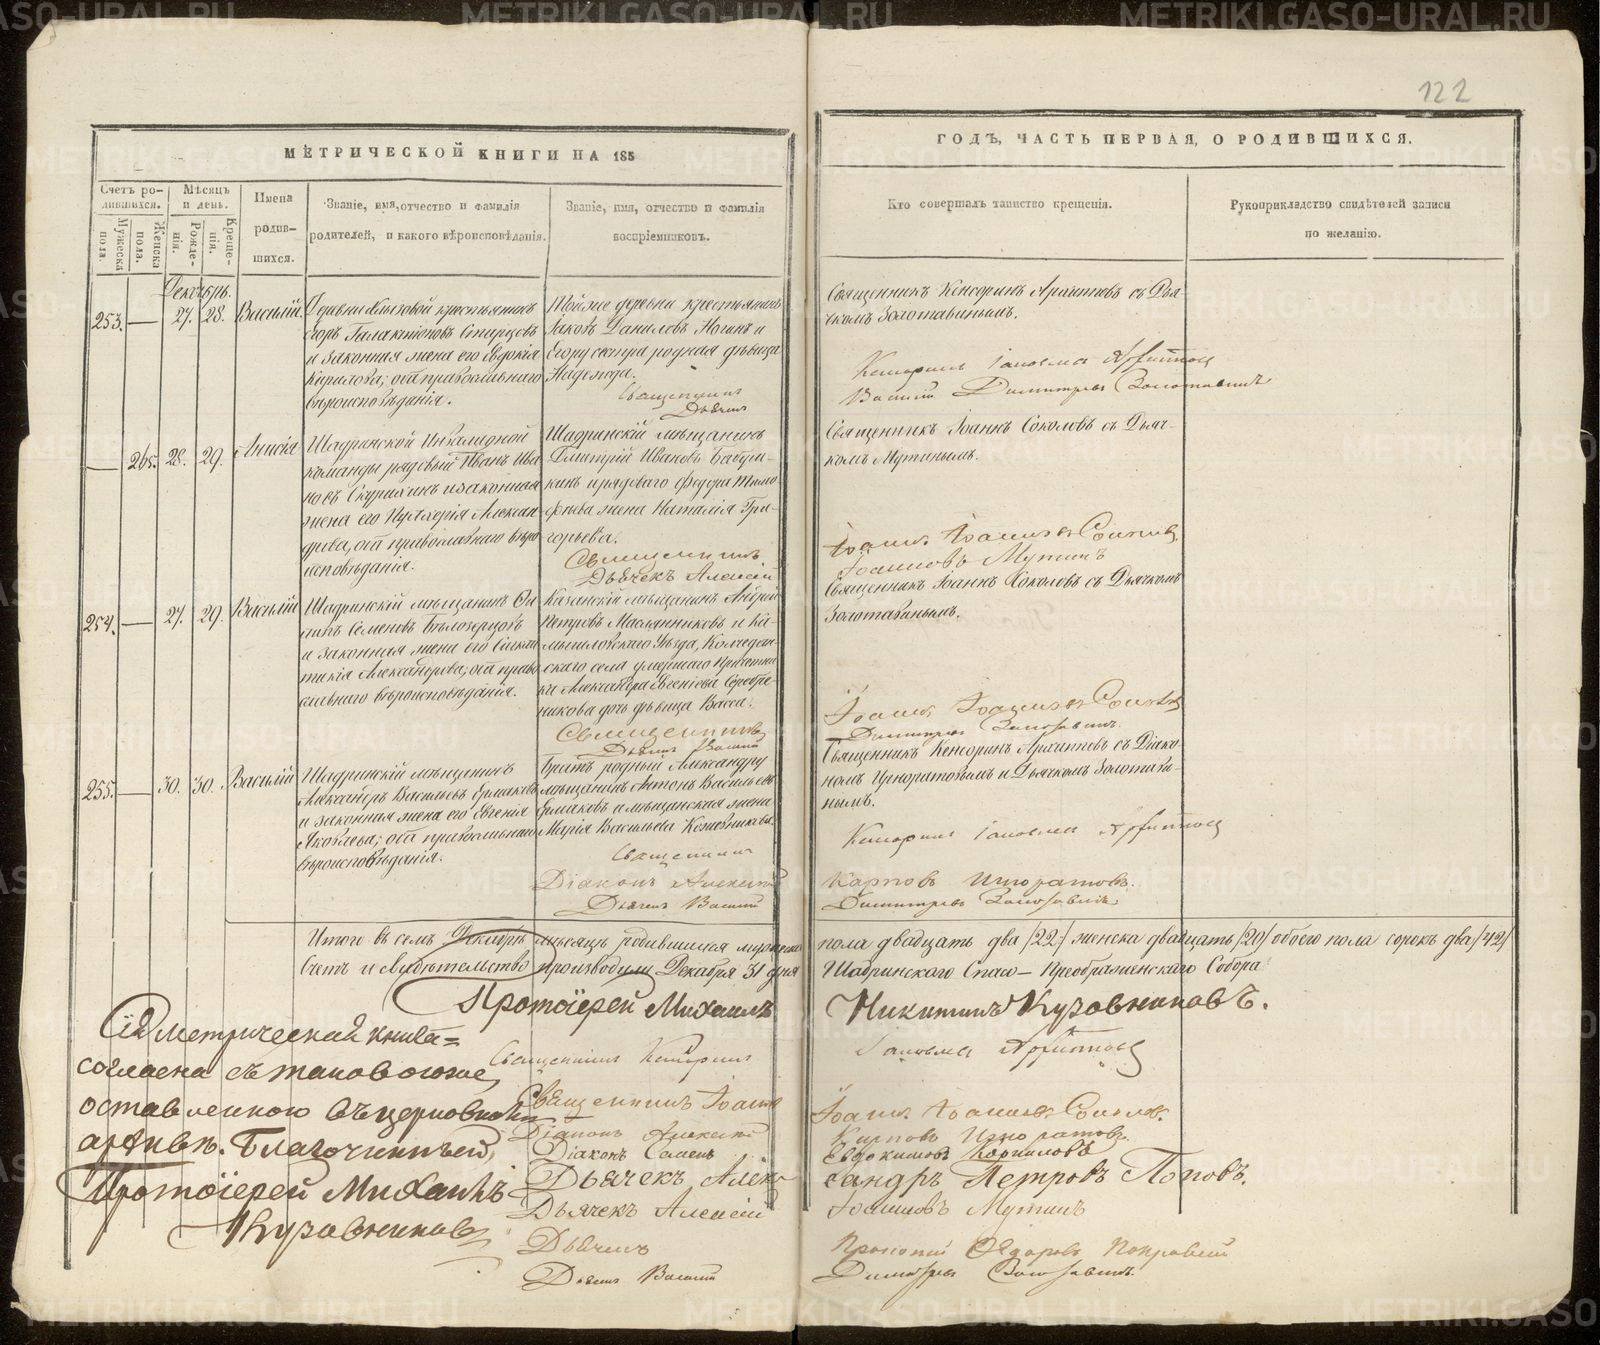 122
МЕТРИЧЕСКОЙ КНИГИ НА 185
ГОДЪ, ЧАСТЬ ПЕРВАЯ, О РОДИВШИХСЯ.
Счетъ ро-
дившихся.
Мужеска
пола.
Женска
пола.
Мѣсяцъ
и день.
Рожде-
нія.
Креще-
нія.
Имена
родив-
шихся.
Званіе, имя, отчество и фамилія
родителей, и какого вѣроисповѣданія.
Званіе, имя, отчество и фамилія
воспріемниковъ.
Кто совершалъ таинство крещенія.
Рукоприкладство свидѣтелей записи
по желанію.
Декабрь.
253. — 27. 28. Василій.
Деревни крестьянинъ
Галактіоновъ Старцовъ
и законная жена его Евдокія
Кирилова; оба православнаго
вѣроисповѣданія.
Тойже деревни крестьянинъ
Іаковъ Даниловъ и
Егору сестра родная дѣвица
Надежда.
Священникъ
Дьячекъ
Священникъ Кенсоринъ Архиповъ съ Дья-
чкомъ Золотавинымъ.
Василій Димитріевъ Золотавинъ
— 265. 28. 29. Анисія
Шадринской Инвалидной
команды рядовый Иванъ Ива
новъ и законная
жена его Пульхерія Алексан-
дрова, оба православнаго вѣро
исповѣданія.
Шадринскій мѣщанинъ
Дмитрій Ивановъ Бабуш-
кинъ и рядоваго Федора Тимо
фѣева жена Наталія Гри-
горьева.
Священникъ
Дьячекъ Алексій
Священникъ Іоаннъ Соколовъ съ Дьяч-
комъ Мутинымъ.
Іоаннъ Іоанновъ Соколовъ
Іоанновъ Мутинъ
254. — 27. 29. Василій
Шадринскій мѣщанинъ
Семеновъ Бѣлозерцовъ
и законная жена его
Александрова; оба право
славнаго вѣроисповѣданія.
Казанскій мѣщанинъ Андрей
Петровъ Маслянниковъ и Ка-
мышловскаго Уѣзда, Колчедан-
скаго села умершаго Причетни
ка Александра Евгеніева Серебре
никова дочь дѣвица Васса.
Священникъ
Дьячекъ Василій
Священникъ Іоаннъ Соколовъ съ Дьячкомъ
Золотавинымъ.
Іоаннъ Іоанновъ Соколовъ
Димитріевъ Золотавинъ.
255. — 30. 30. Василій
Шадринскій мѣщанинъ
Александръ Васильевъ Ермаковъ
и законная жена его Евгенія
Яковлева; оба православнаго
вѣроисповѣданія.
Братъ родный Александру
мѣщанинъ Антонъ Васильевъ
Ермаковъ и мѣщанская жена
Марія Васильева Кожевникова.
Священникъ
Діаконъ Алексій
Дьячекъ Василій
Священникъ Кенсоринъ Архиповъ съ Діако-
номъ Игноратовымъ и Дьячкомъ Золотави-
нымъ.
Карповъ Игноратовъ.
Димитріевъ Золотавинъ.
Итого въ семъ Декабрѣ мѣсяцѣ родившихся мужеска пола двадцать два /22/ женска двадцать /20/ обоего пола сорокъ два /42/
Счетъ и Свидѣтельство производили Декабря 31 дня Шадринскаго Спасо-Преображенскаго Собора
Протоіерей Михаилъ Никитинъ Кузовниковъ.
Священникъ
Священникъ Іоаннъ Іоанновъ Соколовъ.
Діаконъ Алексій Карповъ Игноратовъ.
Діаконъ Семенъ Евдокимовъ Корниловъ
Дьячекъ Александръ Петровъ Поповъ.
Дьячекъ Алексій Іоанновъ Мутинъ
Дьячекъ Прокопій Ѳедоровъ Покровскій
Дьячекъ Василій Димитріевъ Золотавинъ.
Сія метрическая книга
согласна съ таковою же
оставленною въ церковномъ
архивѣ. Благочинный,
Протоіерей Михаилъ
Кузовниковъ
METRIKI.GASO-URAL.RU